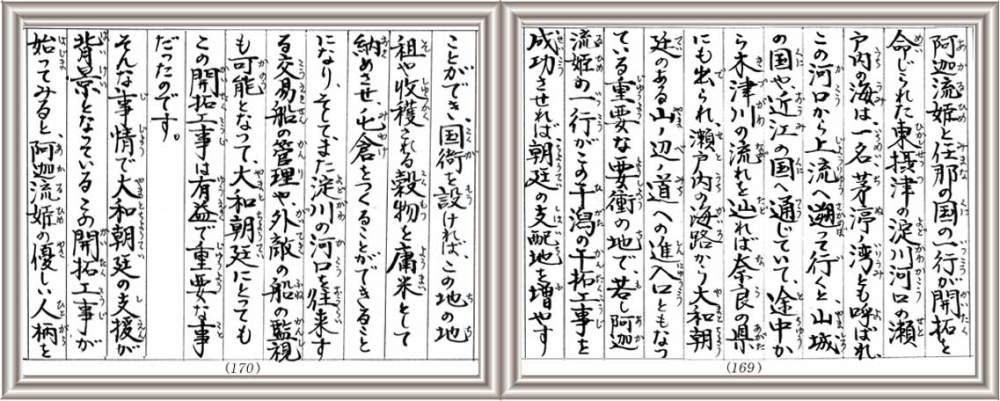 阿迦流姫と任那の国の一行が開拓を
命じられた東摂津の淀川河口の瀬
戸内の海は、一名茅渟ノ湾とも呼ばれ、
この河口から上流へ遡って行くと、山城
の国や、近江の国へ通じていて、途中か
ら木津川の流れを辿れば奈良の県
にも出られ、瀬戸内の海路から大和朝
廷のある山ノ辺ノ道への進入口ともなっ
ている重要な要衝の地で、若し阿迦
流姫の一行がこの干潟の干拓工事を
成功させれば朝廷の支配地を増やす
(169)
ことができ、国衙を設ければ、この地の地
祖や収穫される穀物を庸米として
納めさせ、屯倉をつくることができること
になり、そしてまた淀川の河口を往来す
る交易船の管理や、外敵の船の監視
も可能となって、大和朝廷にとっても
この開拓工事は有益で重要な事
だったのです。
そんな事情で大和朝廷の支援が
背景となっているこの開拓工事が
始ってみると、阿迦流姫の優しい人柄を
(170)